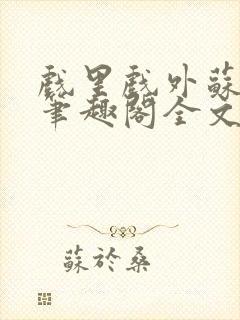 戲里戲外蘇
筆趣閣全文
蘇於桑